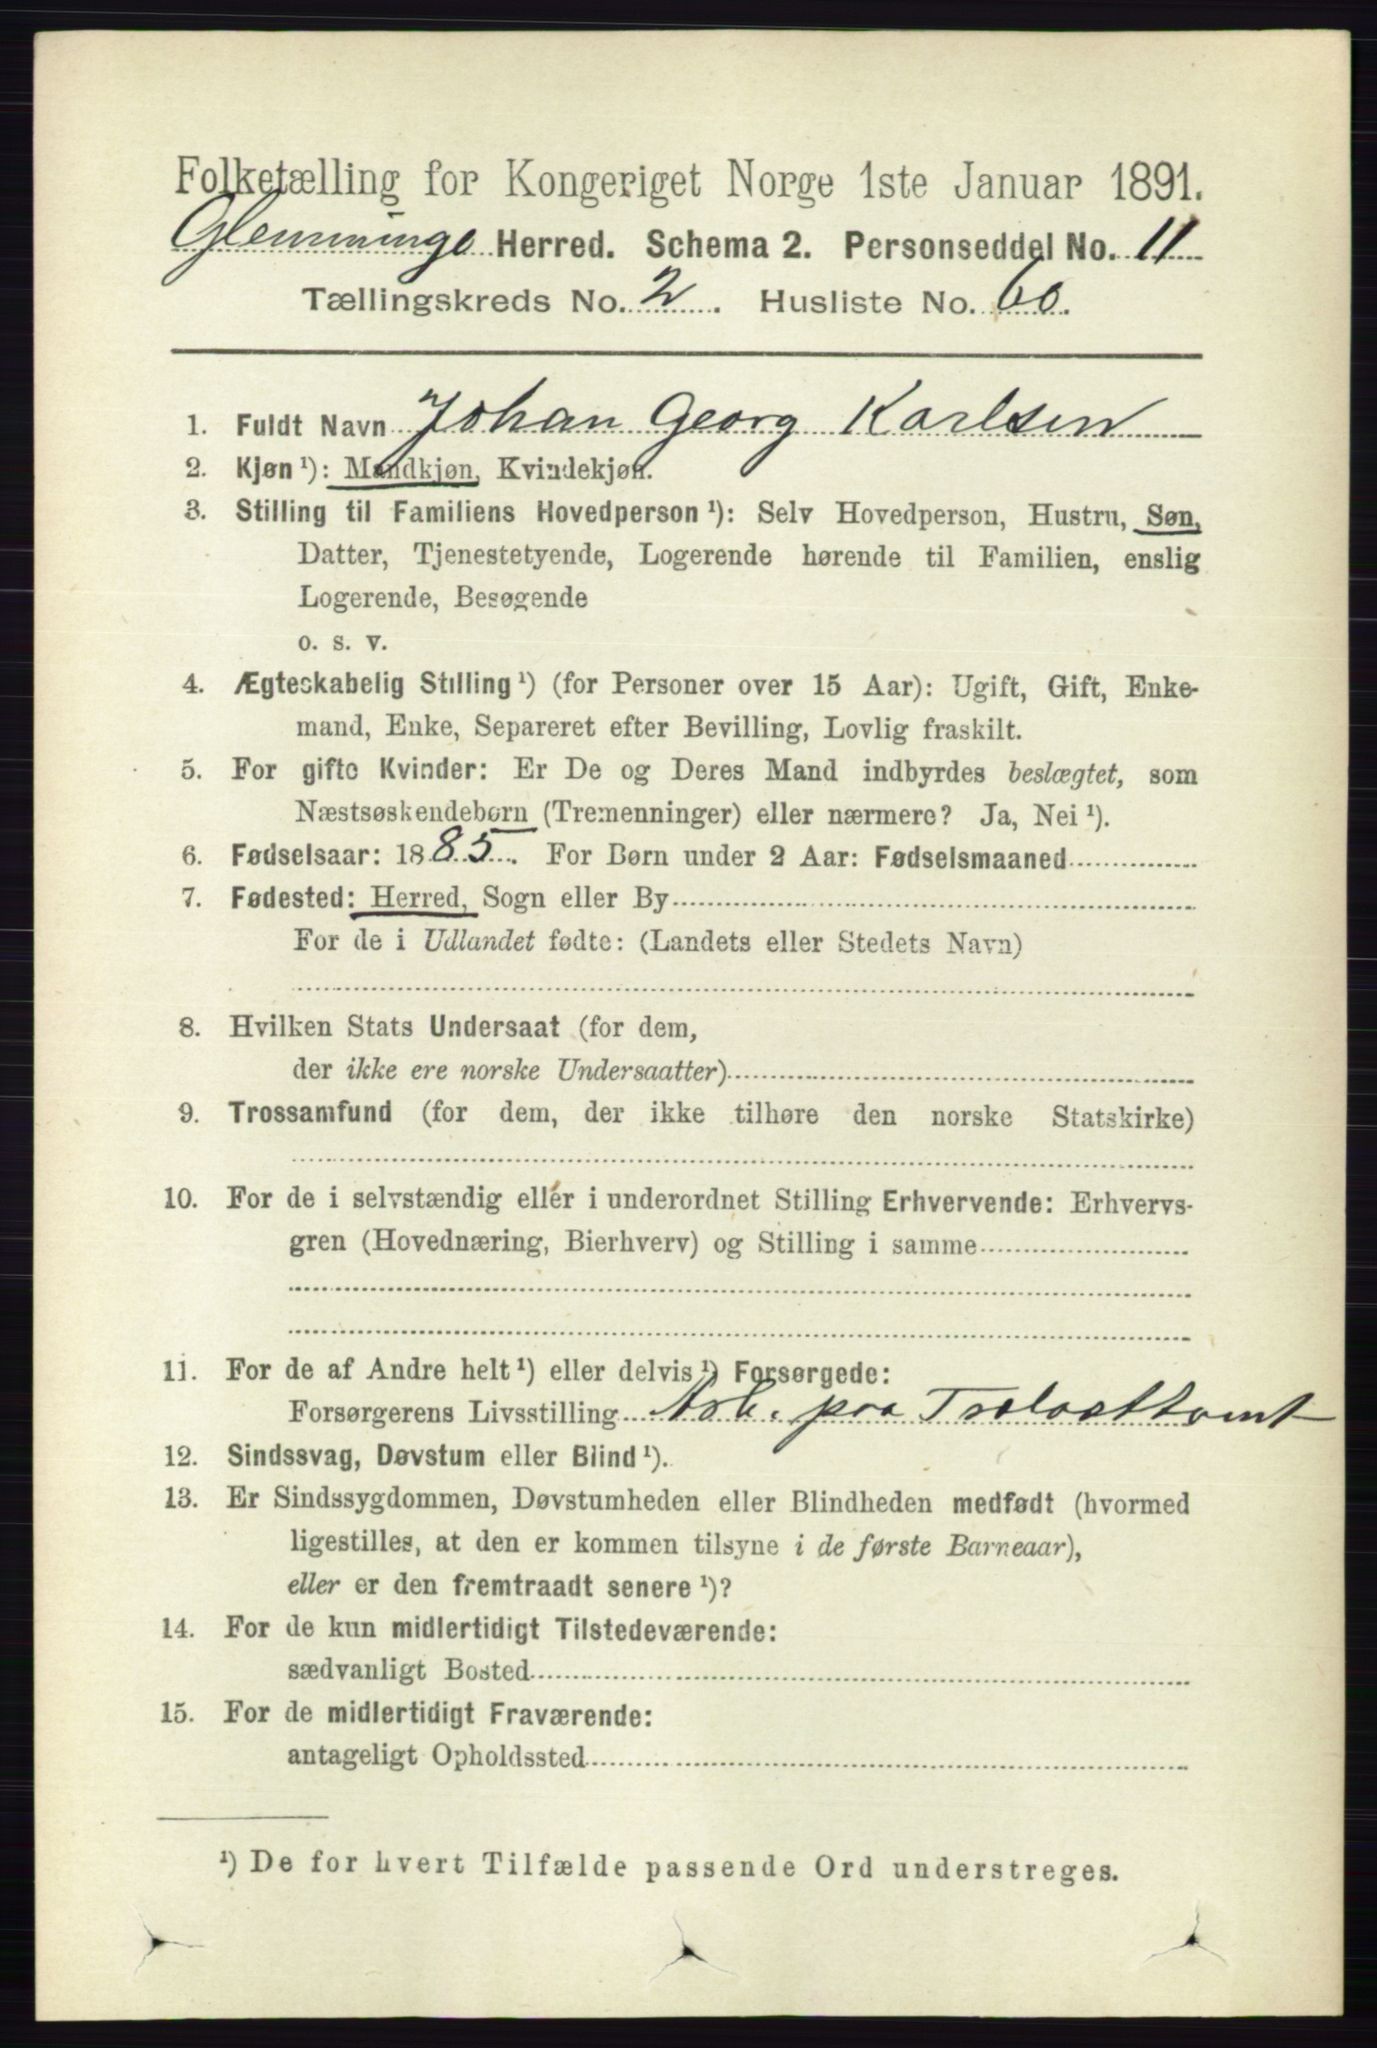 Folketælling for Kongeriget Norge 1ste Januar 1891.
Glemminge Herred. Schema 2. Personseddel No. 11
Tællingskreds No. 2. Husliste No. 60.
1. Fuldt Navn Johan Georg Karlsen
2. Kjøn ¹): Mandkjøn, Kvindekjøn.
3. Stilling til Familiens Hovedperson ¹): Selv Hovedperson, Hustru, Søn,
Datter, Tjenestetyende, Logerende hørende til Familien, enslig
Logerende, Besøgende
o. s. v.
4. Ægteskabelig Stilling ¹) (for Personer over 15 Aar): Ugift, Gift, Enke-
mand, Enke, Separeret efter Bevilling, Lovlig fraskilt.
5. For gifte Kvinder: Er De og Deres Mand indbyrdes beslægtet, som
Næstsøskendebørn (Tremenninger) eller nærmere? Ja, Nei ¹).
6. Fødselsaar: 1885. For Børn under 2 Aar: Fødselsmaaned
7. Fødested: Herred, Sogn eller By
For de i Udlandet fødte: (Landets eller Stedets Navn)
8. Hvilken Stats Undersaat (for dem,
der ikke ere norske Undersaatter)
9. Trossamfund (for dem, der ikke tilhøre den norske Statskirke)
10. For de i selvstændig eller i underordnet Stilling Erhvervende: Erhvervs-
gren (Hovednæring, Bierhverv) og Stilling i samme
11. For de af Andre helt ¹) eller delvis ¹) Forsørgede:
Forsørgerens Livsstilling Arb. paa Trælasttomt
12. Sindssvag, Døvstum eller Blind ¹).
13. Er Sindssygdommen, Døvstumheden eller Blindheden medfødt (hvormed
ligestilles, at den er kommen tilsyne i de første Barneaar),
eller er den fremtraadt senere ¹)?
14. For de kun midlertidigt Tilstedeværende:
sædvanligt Bosted
15. For de midlertidigt Fraværende:
antageligt Opholdssted
¹) De for hvert Tilfælde passende Ord understreges.